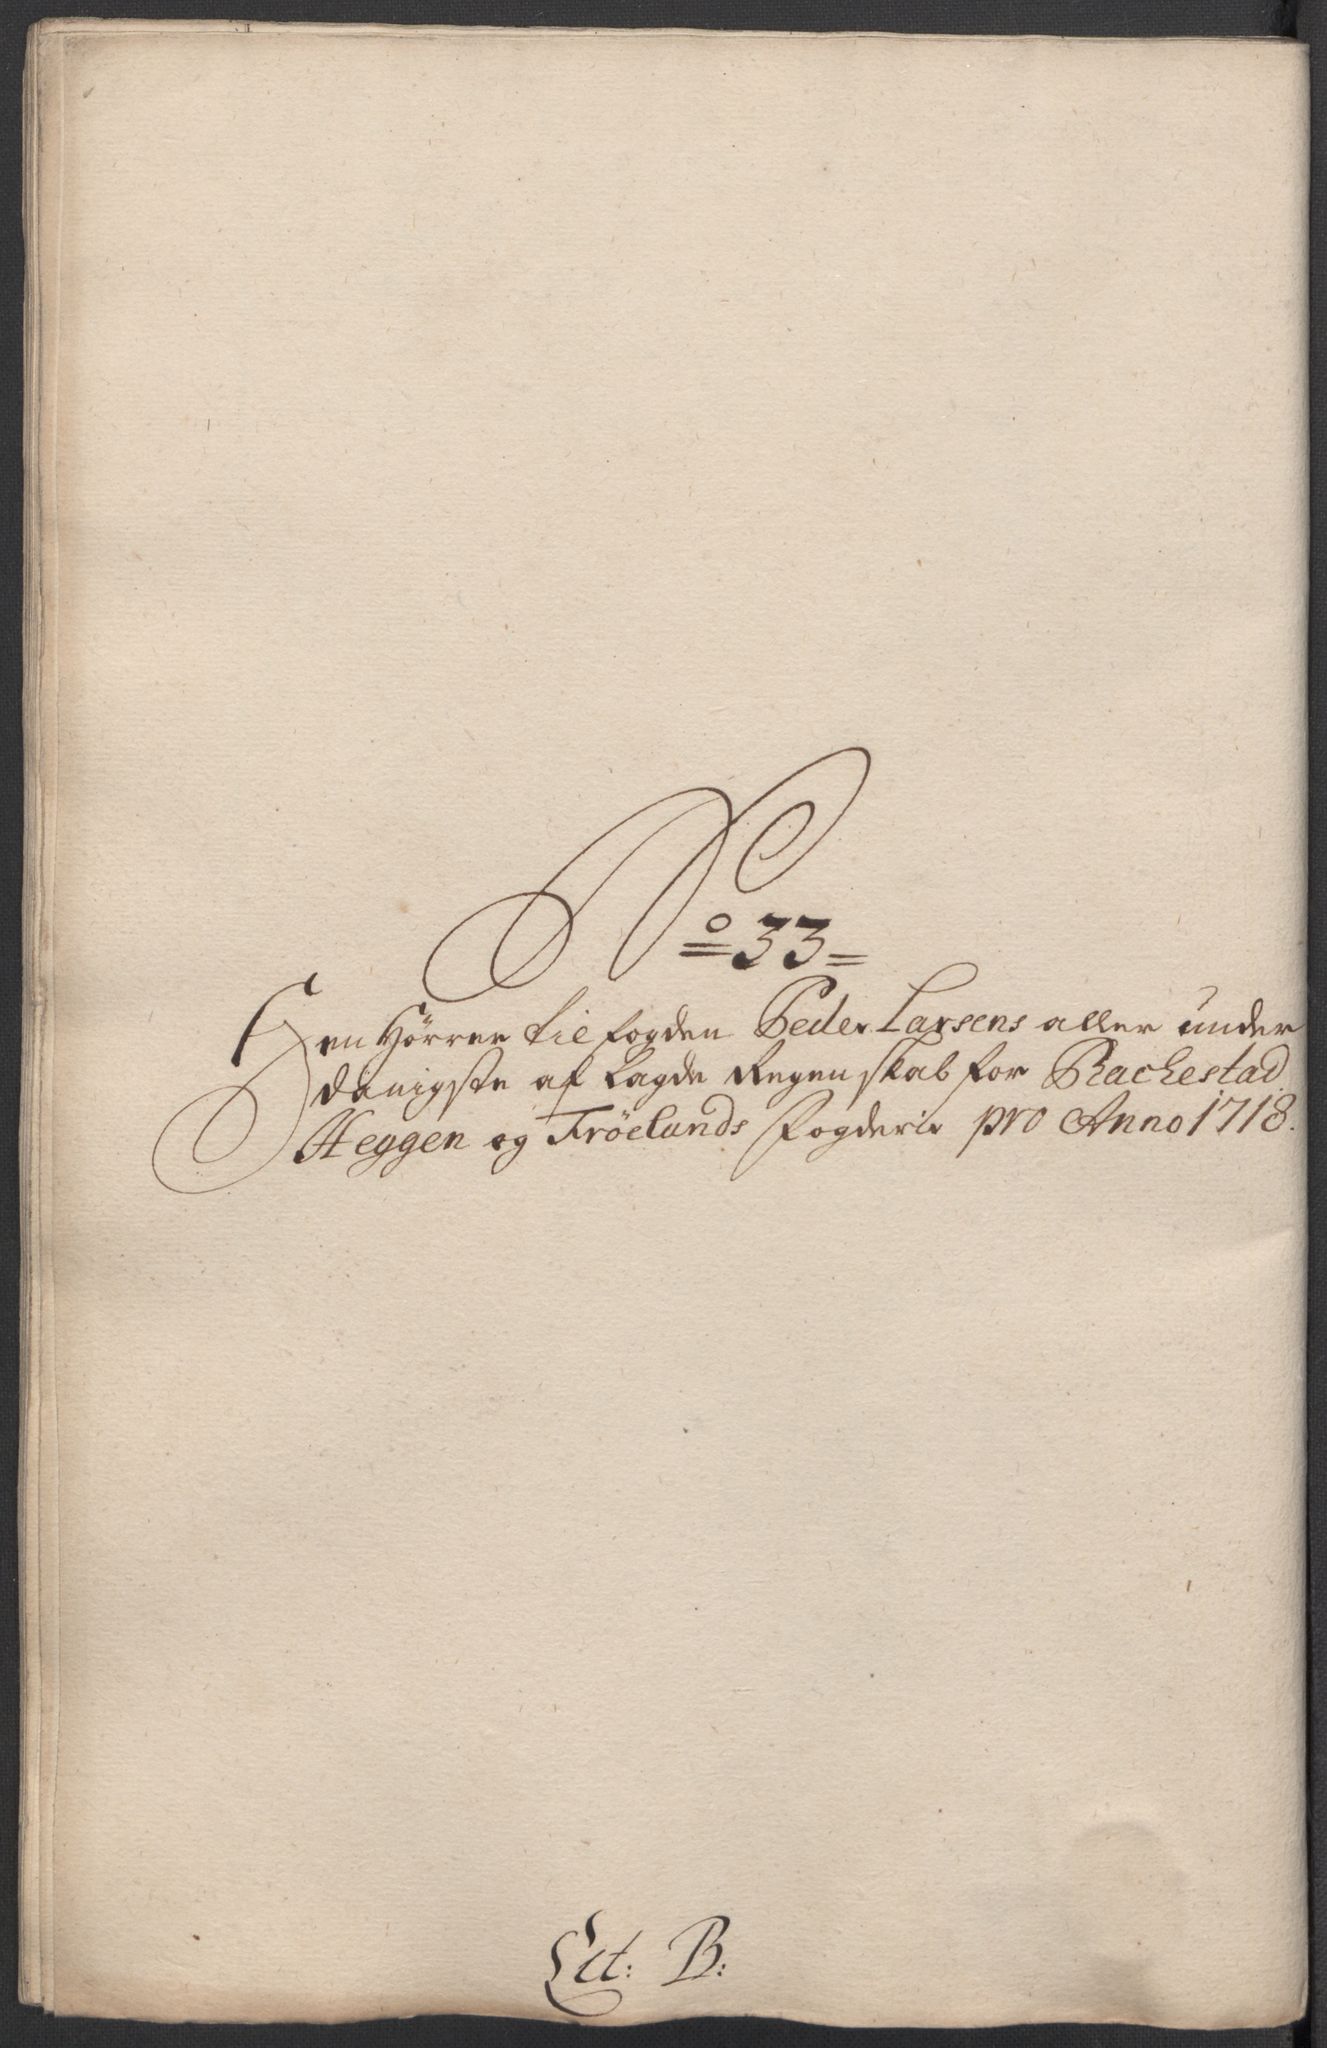 No 33
Hen Hörrer til fogden Peder Larsens aller under
danigste aflagde Regenskab for Rachestad
Heggen og Fröelunds fogderie pro Anno 1718.
Lit: B: